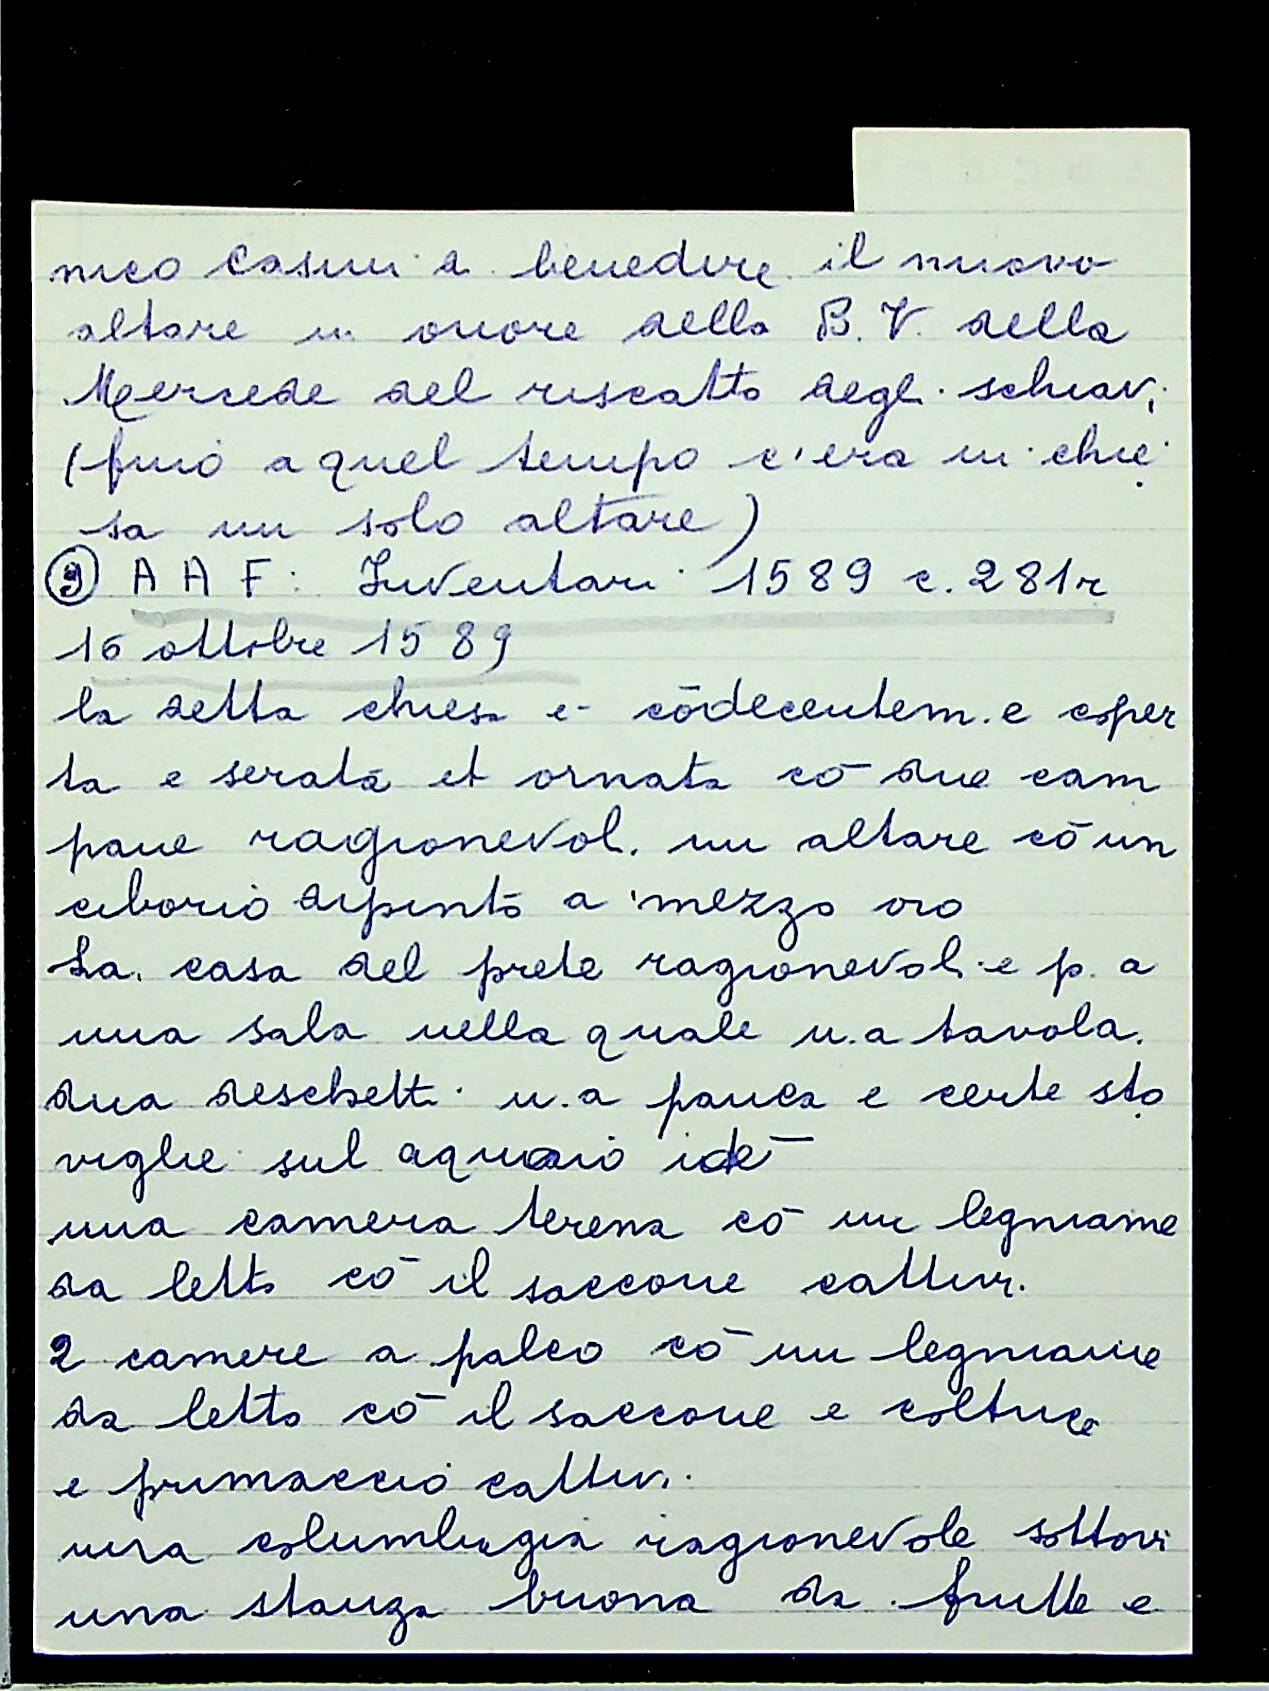 nico Casini a benedire il nuovo
altare in onore della B. V. della
Mercede del riscatto degli schiavi
(fino a quel tempo c'era in chie
sa un solo altare)
9 A A F: Inventari 1589 c. 281r
16 ottobre 1589
la detta chiesa e cōdecentem.e coper
ta e serata et ornata cō due cam
pane ragionevol. un altare cō un
ciborio dipinto a mezzo oro
La casa del prete ragionevol.e p. a
una sala nella quale u.a tavola.
dua deschetti u.a panca e certe sto
viglie sul aquaio idē
una camera terena cō un legniame
da letto cō il saccone cattiv.
2 camere a palco cō un legniame
da letto cō il saccone e coltrice
e primaccio cattivi.
una columbigia ragionevole sottovi
una stanza buona da frutte e